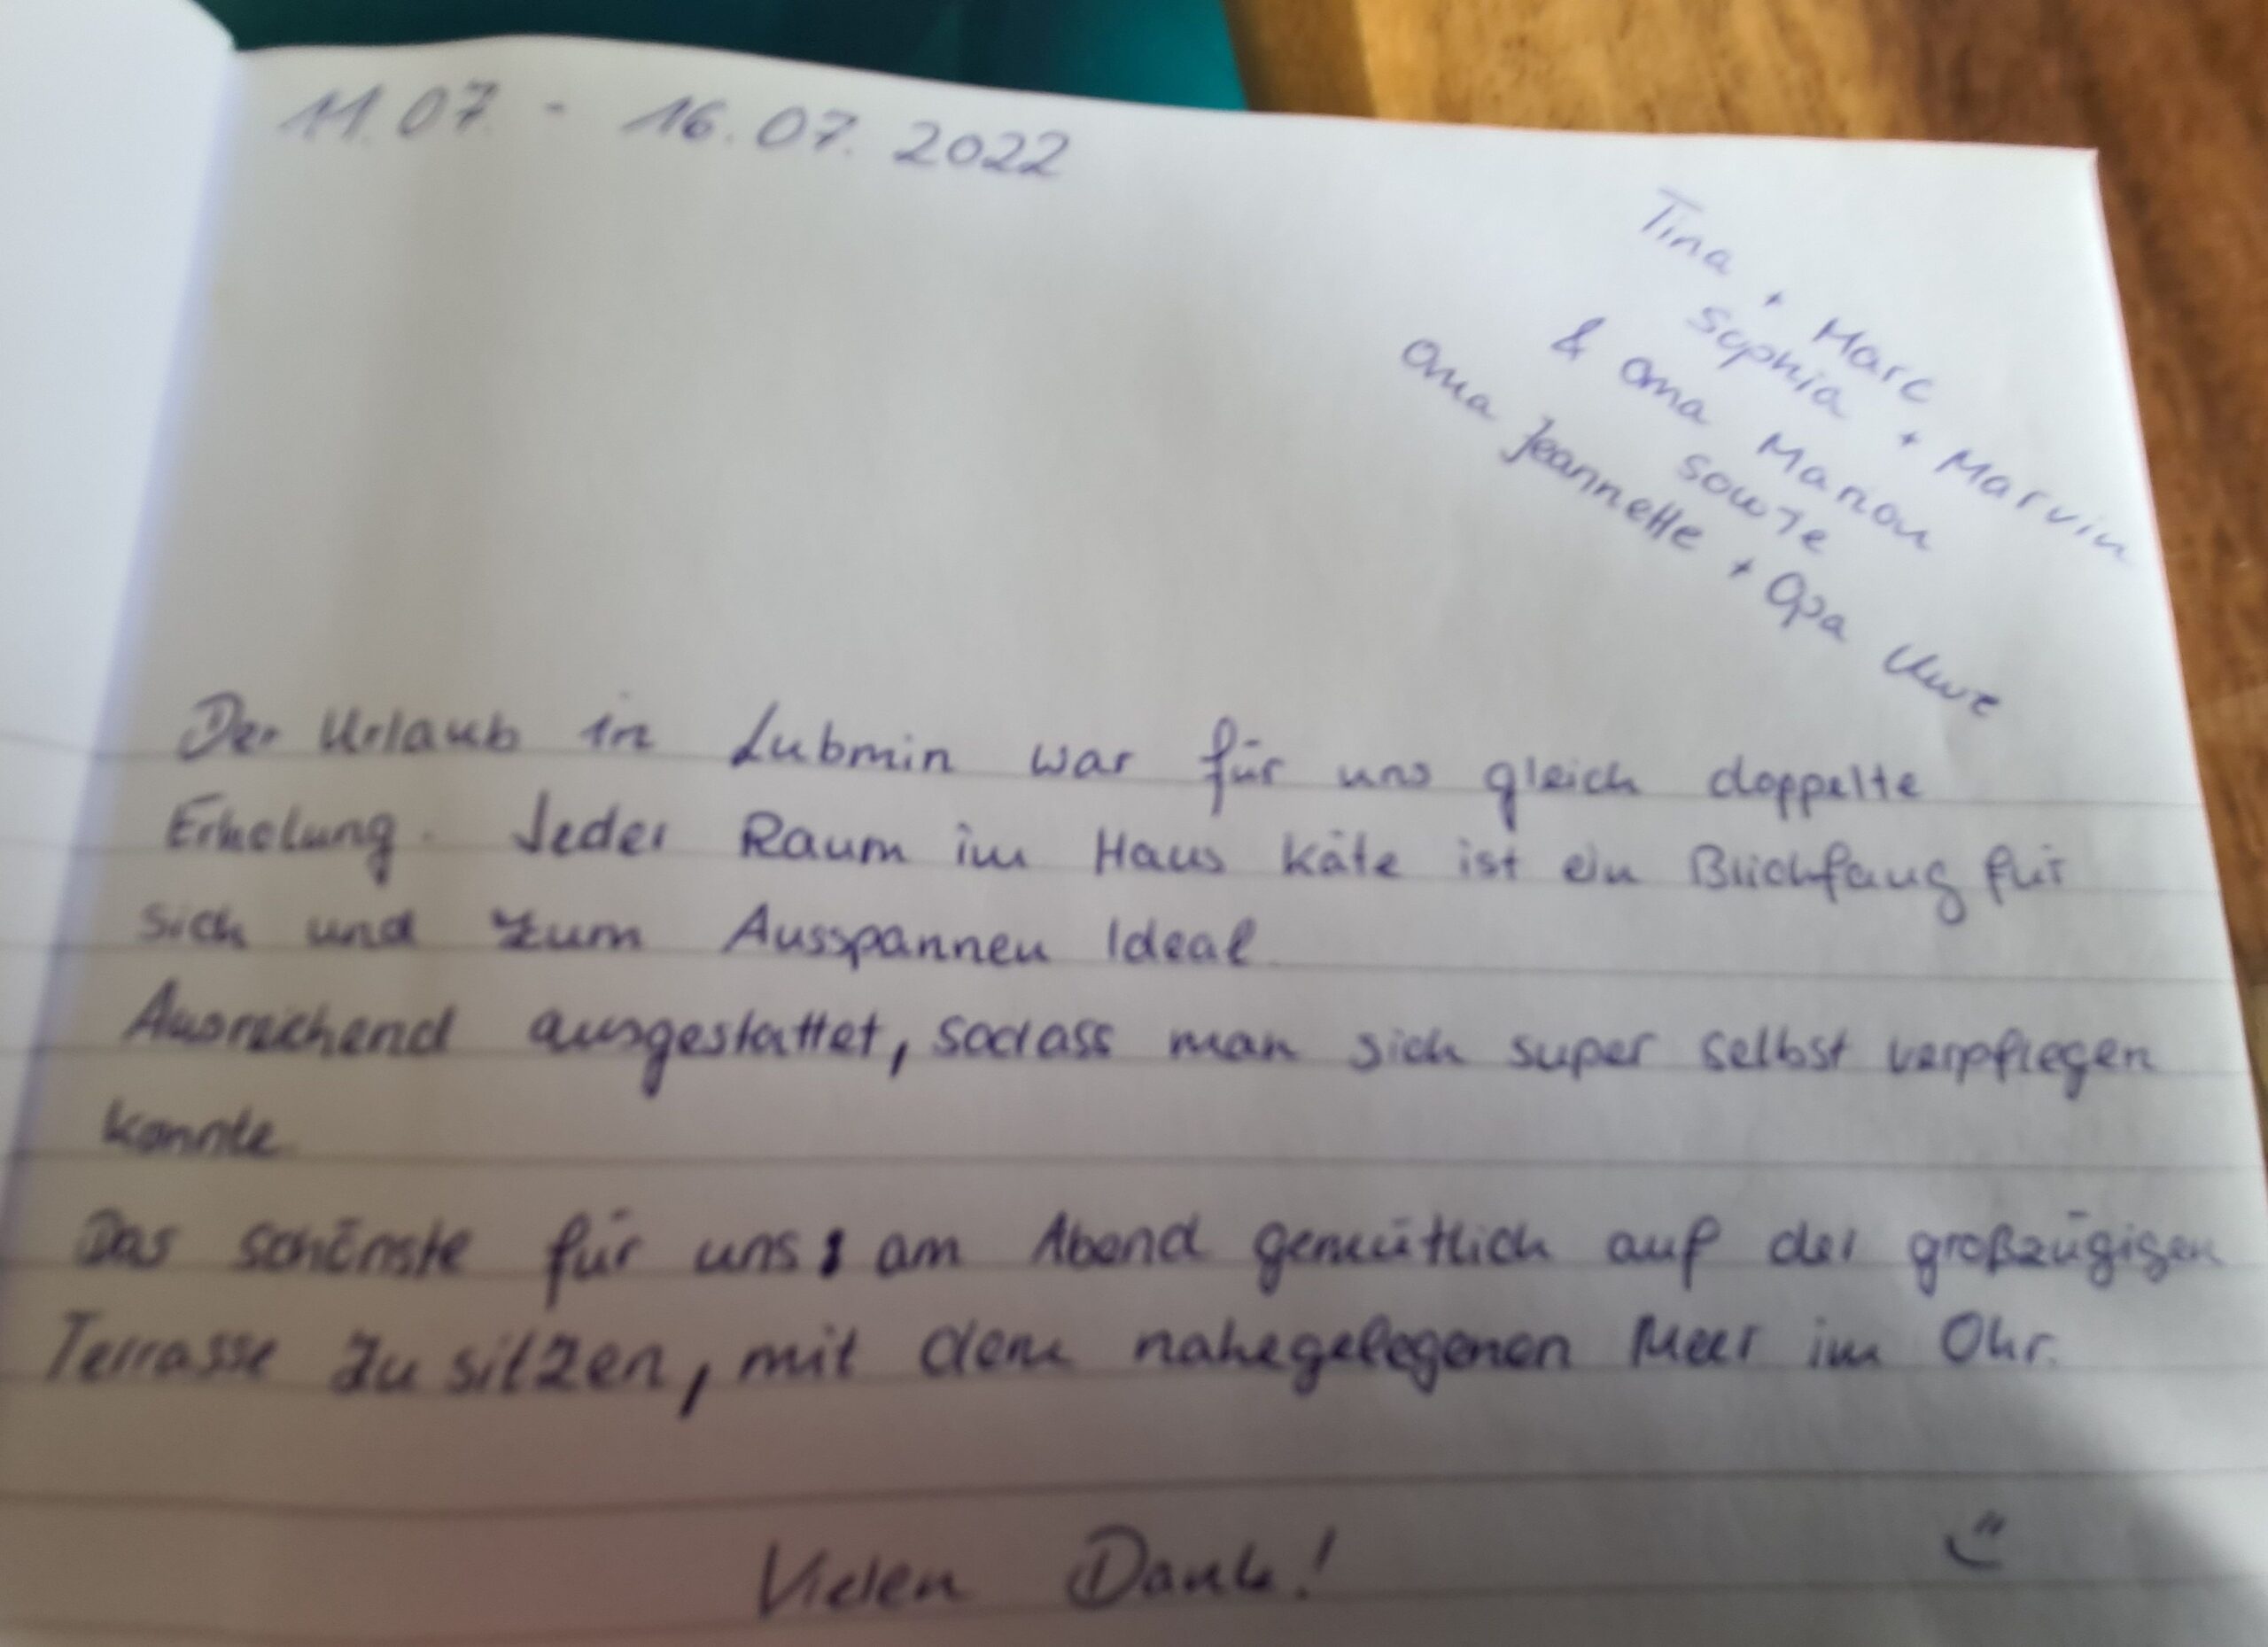 11.07 - 16.07.2022
Tina + Marc
Sophia + Marvin
& Oma Marion
sowie
Oma Jeannette + Opa Uwe
Der Urlaub in Lubmin war für uns gleich doppelte
Erholung. Jeder Raum im Haus Käte ist ein Blickfang für
sich und zum Ausspannen Ideal.
Ausreichend ausgestattet, sodass man sich super selbst verpflegen
konnte.
Das schönste für uns: am Abend gemütlich auf der großzügigen
Terrasse zu sitzen, mit dem nahegelegenen Meer im Ohr.
Vielen Dank!